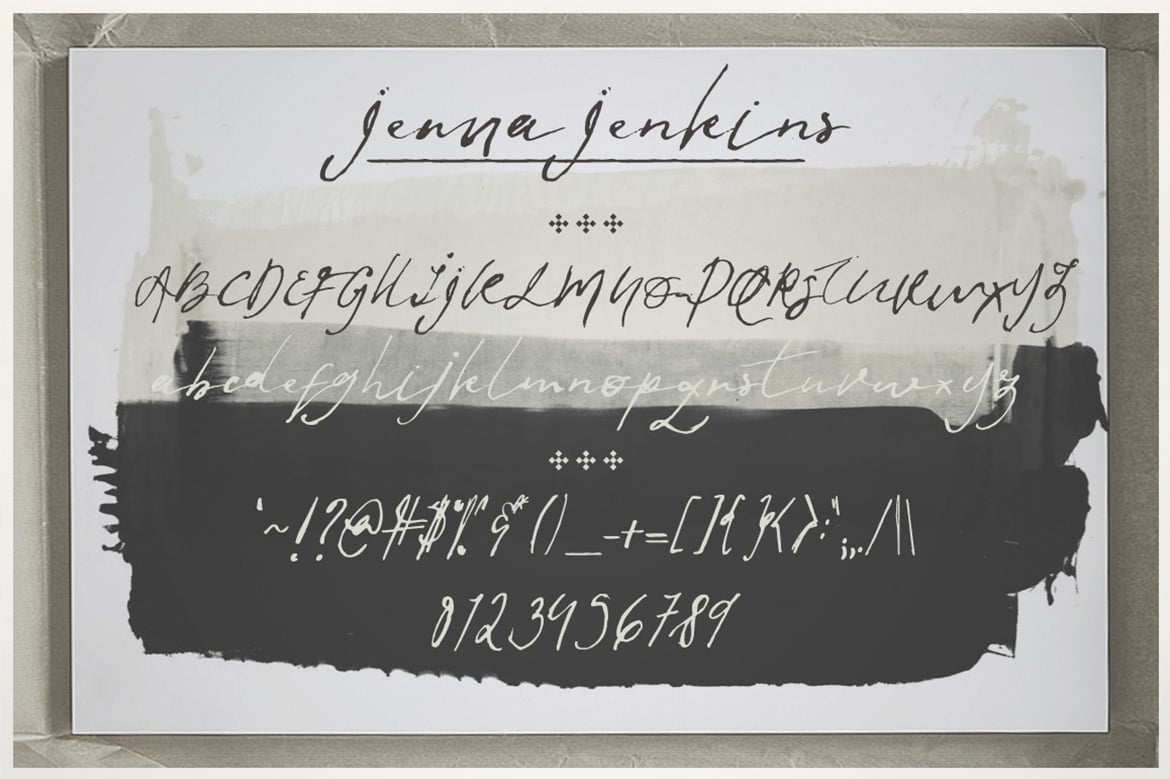 jenna jenkins
ABCDEFGHIJKLMNOPQRSTUVWXYZ
abcdefghijklmnopqrstuvwxyz
`~!?@#$%^&*()_-+=[]{}<>:";,./\|
0123456789